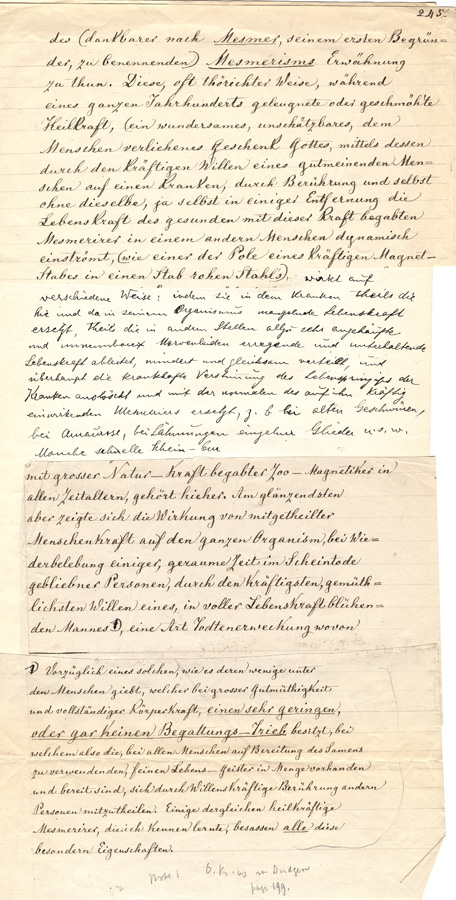 245.
des (dankbarer nach Mesmer, seinem ersten Begrün=
der, zu benennenden) Mesmerisms Erwähnung
zu thun. Diese, oft thörichter Weise, während
eines ganzen Jahrhunderts geleugnete oder geschmähte
Heilkraft, (ein wundersames, unschätzbares, dem
Menschen verliehenes Geschenk Gottes, mittels dessen
durch den kräftigen Willen eines gutmeinenden Men=
schen auf einen Kranken, durch Berührung und selbst
ohne dieselbe, ja selbst in einiger Entfernung die
Lebenskraft des gesunden mit dieser Kraft begabten
Mesmerirer in einem andern Menschen dynamisch
einströmt, (wie einer der Pole eines kräftigen Magnet-
Stabes in einen Stab rohen Stahls). wirkt auf
verschiedene Weise: indem sie in dem Kranken theils die
hie und da in seinem Organismus mangelnde Lebenskraft
ersetzt, theils die in andern Stellen allzu sehr angehäufte
und Nervenleiden erregende und unterhaltende
Lebenskraft ableitet, mindert und gleichsam vertheilt, und
überhaupt die krankhafte Verstimmung des Lebensprinzips der
Kranken auslöscht und mit der normalen des auf ihn kräftig
einwirkenden ersetzt, z. b bei alten Geschwüren,
bei Amaurose, bei Lähmungen einzelner Glieder u.s.w.
Manche schnelle Schein-Cur
mit grosser Natur-Kraft begabter Zoo-Magnetiker in
allen Zeitaltern, gehört hieher. Am glänzendsten
aber zeigte sich die Wirkung von mitgetheilter
Menschenkraft auf den ganzen Organism, bei Wie=
derbelebung einiger, geraume Zeit im Scheintode
gebliebner Personen, durch den kräftigsten, gemüth=
lichsten Willen eines, in voller Lebenskraft blühen=
den Mannes 1), eine Art Todtenerweckung wovon
1) Vorzüglich eines solchen, wie es deren wenige unter
den Menschen giebt, welcher bei grosser Gutmüthigkeit
und vollständiger Körperkraft, einen sehr geringen,
oder gar keinen Begattungs-Trieb besitzt, bei
welchem also die, bei allen Menschen auf Bereitung des Samens
zu verwendenden, feinen Lebens-Geister in Menge vorhanden
und bereit sind, sich durch Willenskräftige Berührung andern
Personen mitzutheilen. Einige dergleichen heilkräftige
Mesmerirer, die ich kennen lernte, besassen alle diese
besondern Eigenschaften.
Note 1
page 199.